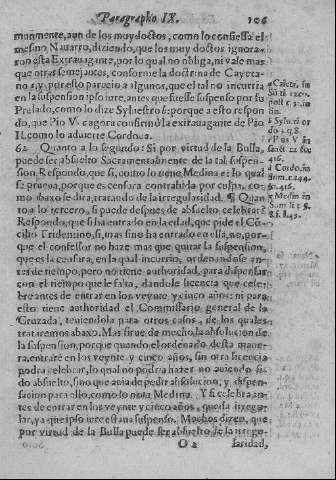 Paragrapho IX. 106
munmente, aun de los muy doctos, como lo confiessa el
mesmo Nauarro, diziendo, que los muy doctos ignora-
ron esta Extrauagante, por lo qual no obliga, ni vale mas
que otras semejantes, conforme la doctrina de Cayeta-
no, y por esto parecio a algunos, que el tal no incurria
en la suspension ipso iure, antes que fuesse suspenso por su
Prelado, como lo dize Syluestro b: porque a esto respon
do, que Pio V. c agora confirmò la extrauagante de Pio
II. como lo aduierte Cordoua.
62 Quanto a lo segundo: Si por virtud de la Bulla,
puede ser absuelto Sacramentalmente de la tal suspen-
sion. Respondo, que si, como lo tiene Medina e: lo qual
se prueua, porque es censura contrahida por culpa, co-
mo abaxo se dira, tratando de la irregularidad. ¶ Quan
to a lo tercero, si puede despues de absuelto celebrar?
Respondo, que si ha entrado en la edad, que pide el Cõ-
cilio Tridentino, si, mas si no ha entrado en ella, no, por-
que el confessor no haze mas que quitar la suspension,
que es la censura, en la qual incurrio, ordenandose an-
tes de tiempo, pero no tiene authoridad, para dispensar
con el tiempo que le falta, dandole licencia que cele-
bre antes de entrar en los veynte y cinco años: ni para
esto tiene authoridad el Commissario general de la
Cruzada, teniendola para otros casos, de los quales
trataremos abaxo. Mas sirue de mucho, la absolucion de
la suspension, porque quando el ordenado desta mane-
ra, entrare en los veynte y cinco años, sin otra licencia
podra celebrar, lo qual no podria hazer no auiendo si-
do absuelto, sino que auia de pedir absolucion, y dispen-
sacion para ello, como lo nota Medina. Y si celebra an-
tes de entrar en los veynte y cinco años, queda irregu-
lar, ya que ipso iure estaua suspenso. Muchos dizen, que
por virtud de la Bulla puede ser absuelto de la irregu-
O 2 laridad,
a Caiet. in
b Sylu.
c Pius V in
d Cordo. in
e Medin.